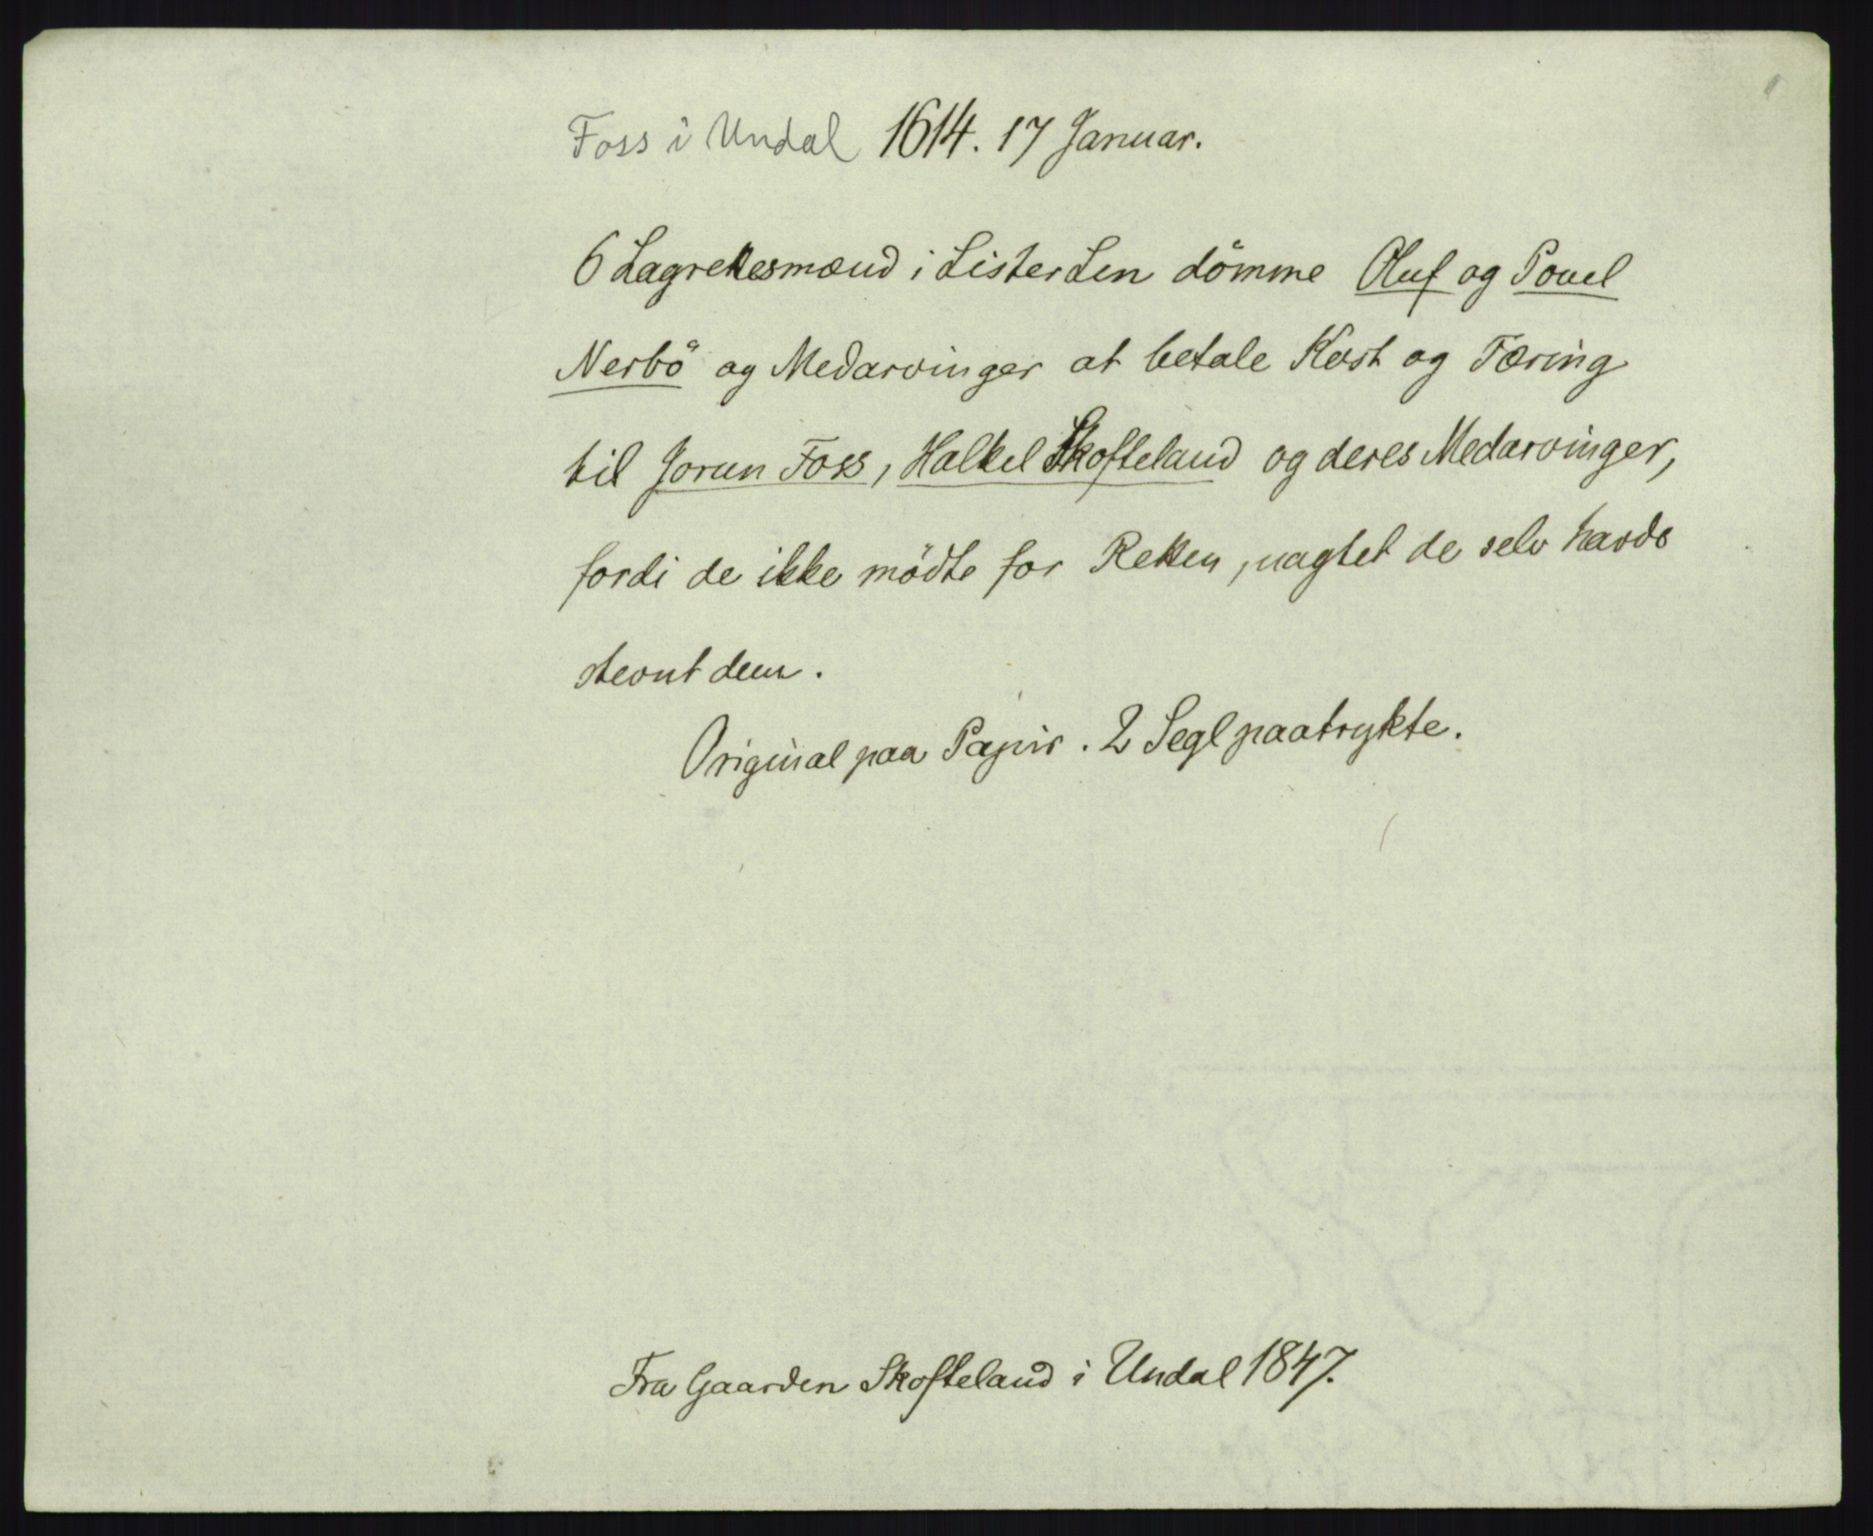 Foss i Undal 1614. 17 Januar.
6 Lagrettesmænd i Lister Len dömme Oluf og Povel
Nerbö og Medarvinger at betale Kost og Tæring
til Jorun Foss, Halkel Skofteland og deres Medarvinger,
fordi de ikke mödte for Retten, uagtet de selv havde
stevnt dem.
Original paa Papir. 2 Segl paatrykte.
Fra Gaarden Skofteland i Undal 1847.